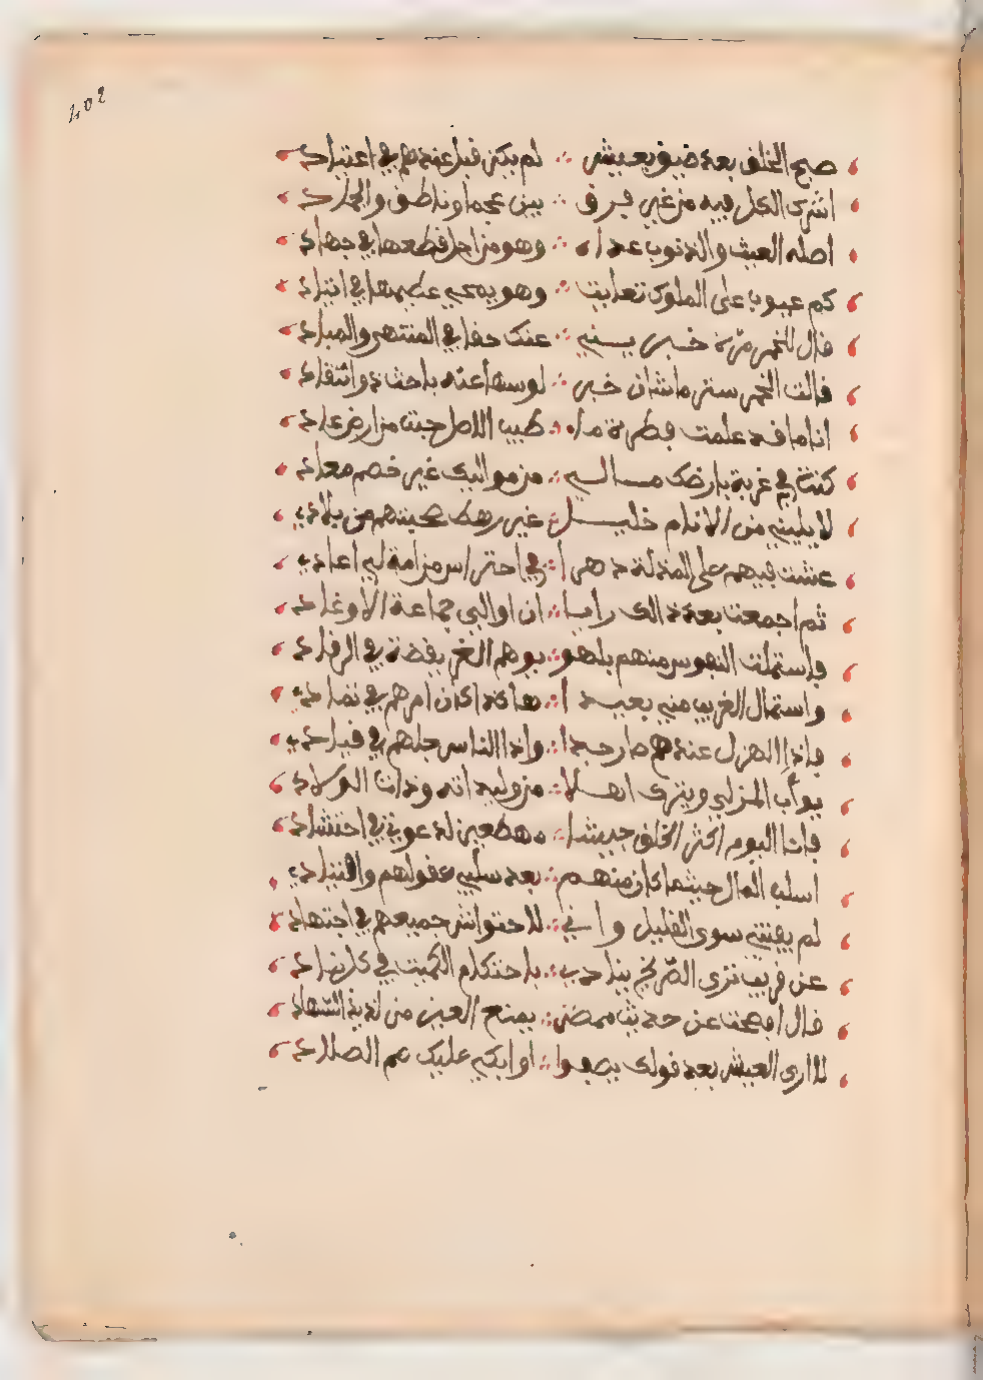 402
صبح الخلف بعد ضيق بعيش ∴ لم يكن قبل عندهم في اعتياد
اشترى الكل فيه من غير فرق ∴ بين عجماو ناطق والجماد
اصله العيث والذنوب عداه ∴ وهو من اجل قطعها في جهاد
كم عيوب على الملوك تعدايت ∴ وهو يدعى عظيمها في انتياد
قال للخمر مرة خبريني ∴ عنك حقا في المنتهى والمباد
قالت الخمر ستر ماشان خير ∴ لو سها عنه باحث ذو انتقاد
انا ما قد علمت قطرة ماء ∴ طيب الاصل جيت من ارض عاد
كنت في غربة بارضك مالي ∴ من مواليك غير خصم معاد
لا يليني من الانام خليل ∴ غير رهط صحبتهم من بلادي
عشت فيهم على المذلة دهرا ∴ في احتراس من امة لي اعادي
ثم اجمعت بعد ذالك رايا ∴ ان اوالي جماعة الاوغاد
فاستملت النفوس منهم بلهو ∴ يوهم الغر يقضة في الرقاد
واستمال الغريب مني بعيدا ∴ هاكذا كان امرهم في تمادي
فاذا الهزل عندهم صار جدا ∴ واذا الناس جلهم في قيادي
يوأب المنزلي ويترى اهلا ∴ من وليد انه وذات الوساد
فانا اليوم اكثر الخلق جيشا ∴ مهطعين لدعوتي في احتشاد
اسلب المال حيثما كان منهم ∴ بعد سلبي عقولهم واقتيادي
لم يفتني سوى القليل واني ∴ لاحتوائش جميعهم في اجتهاد
عن قريب ترى الصريخ ينادي ∴ باحتكام الكميت في كل ناد
قال افصحت عن حديث ممض ∴ يمنع العين من لذيذ السهاد
لا ارى العيش بعد قولك يصفوا ∴ او ابكي عليك صم الصلاد